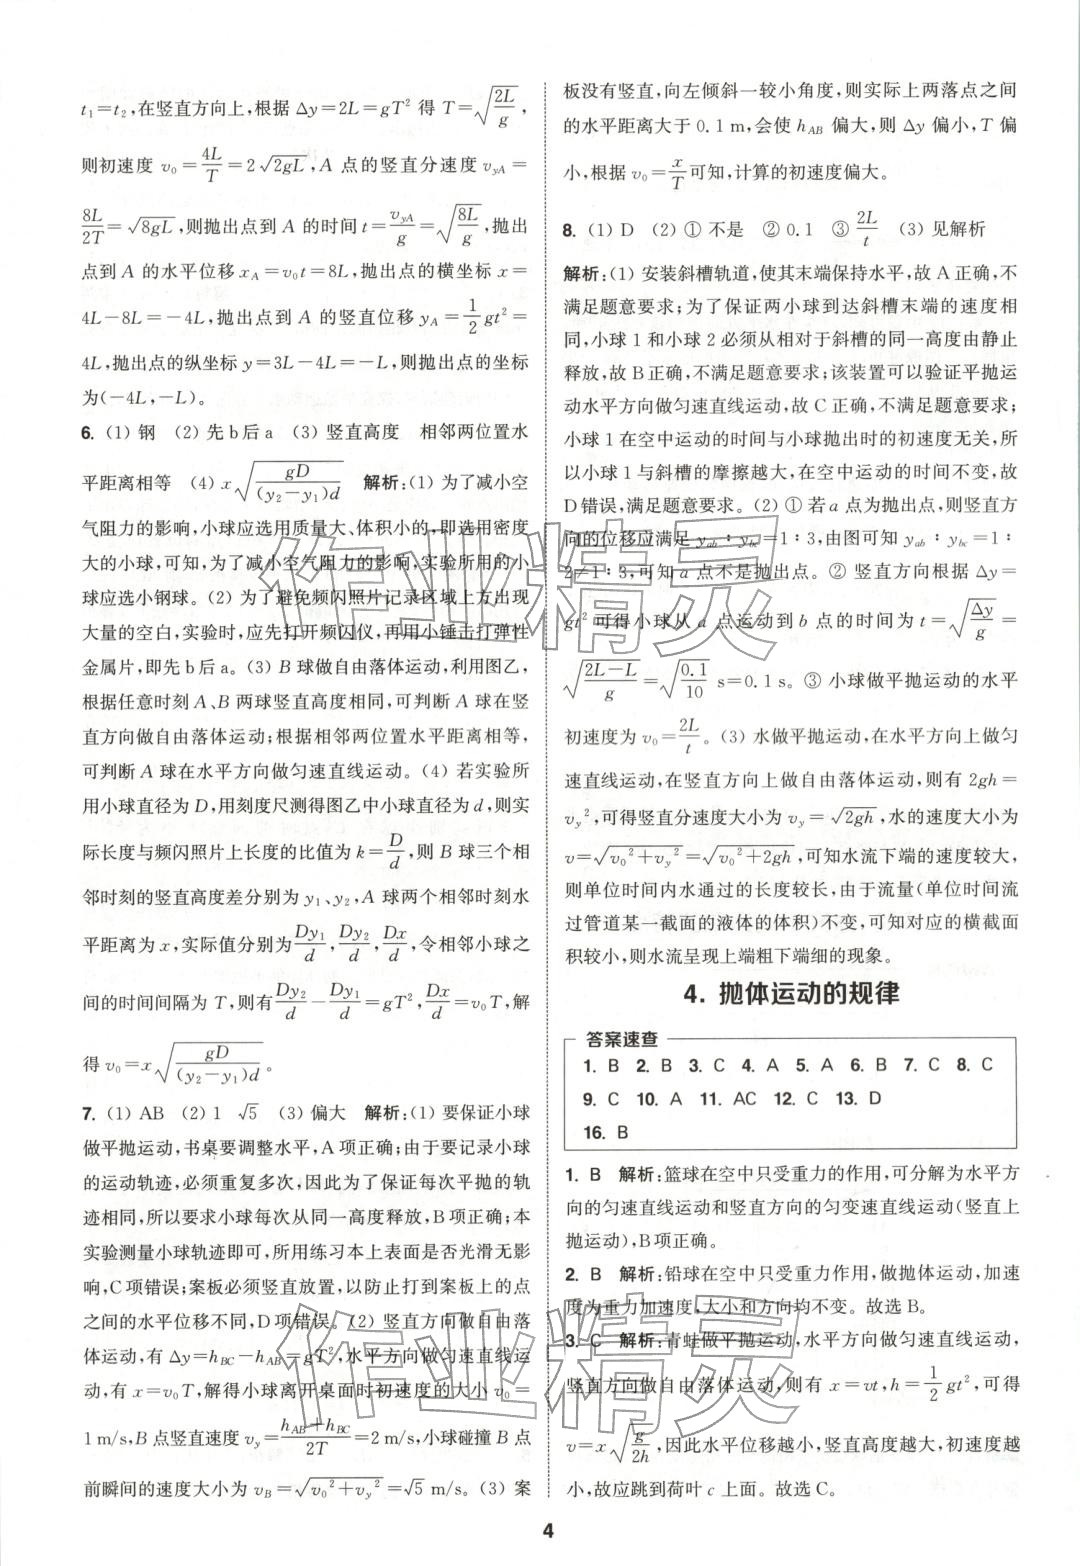 t₁=t₂,在竖直方向上,根据 Δy=2L=gT² 得 T=√(2L/g),
则初速度 v₀=4L/T=2√(2gL),A 点的竖直分速度 v_yA=
8L/2T=√(8gL),则抛出点到 A 的时间 t=v_yA/g=√(8L/g),抛出
点到 A 的水平位移 x_A=v₀t=8L,抛出点的横坐标 x=
4L-8L=-4L,抛出点到 A 的竖直位移 y_A=1/2 gt²=
4L,抛出点的纵坐标 y=3L-4L=-L,则抛出点的坐标
为(-4L,-L)。
6. (1) 钢 (2) 先 b 后 a (3) 竖直高度 相邻两位置水
平距离相等 (4) x√(gD/((y₂-y₁)d)) 解析:(1) 为了减小空
气阻力的影响,小球应选用质量大、体积小的,即选用密度
大的小球,可知,为了减小空气阻力的影响,实验所用的小
球应选小钢球。(2) 为了避免频闪照片记录区域上方出现
大量的空白,实验时,应先打开频闪仪,再用小锤击打弹性
金属片,即先 b 后 a。(3) B 球做自由落体运动,利用图乙,
根据任意时刻 A、B 两球竖直高度相同,可判断 A 球在竖
直方向做自由落体运动;根据相邻两位置水平距离相等,
可判断 A 球在水平方向做匀速直线运动。(4) 若实验所
用小球直径为 D,用刻度尺测得图乙中小球直径为 d,则实
际长度与频闪照片上长度的比值为 k=D/d,则 B 球三个相
邻时刻的竖直高度差分别为 y₁、y₂,A 球两个相邻时刻水
平距离为 x,实际值分别为Dy₁/d、Dy₂/d、Dx/d,令相邻小球之
间的时间间隔为 T,则有Dy₂/d-Dy₁/d=gT²,Dx/d=v₀T,解
得 v₀=x√(gD/((y₂-y₁)d))。
7. (1) AB (2) 1 √5 (3) 偏大 解析:(1) 要保证小球
做平抛运动,书桌要调整水平,A 项正确;由于要记录小球
的运动轨迹,必须重复多次,因此为了保证每次平抛的轨
迹相同,所以要求小球每次从同一高度释放,B 项正确;本
实验测量小球轨迹即可,所用练习本上表面是否光滑无影
响,C 项错误;案板必须竖直放置,以防止打到案板上的点
之间的水平位移不同,D 项错误。(2) 竖直方向做自由落
体运动,有 Δy=h_BC-h_AB=gT²,水平方向做匀速直线运
动,有 x=v₀T,解得小球离开桌面时初速度的大小 v₀=
1 m/s,B 点竖直速度 v_y=(h_AB+h_BC)/2T=2 m/s,小球碰撞 B 点
前瞬间的速度大小为 v_B=√(v₀²+v_y²)=√5 m/s。(3) 案
板没有竖直,向左倾斜一较小角度,则实际上两落点之间
的水平距离大于 0.1 m,会使 h_AB 偏大,则 Δy 偏小,T 偏
小,根据 v₀=x/T可知,计算的初速度偏大。
8. (1) D (2) ① 不是 ② 0.1 ③ 2L/t (3) 见解析
解析:(1) 安装斜槽轨道,使其末端保持水平,故 A 正确,不
满足题意要求;为了保证两小球到达斜槽末端的速度相
同,小球 1 和小球 2 必须从相对于斜槽的同一高度由静止
释放,故 B 正确,不满足题意要求;该装置可以验证平抛运
动水平方向做匀速直线运动,故 C 正确,不满足题意要求;
小球 1 在空中运动的时间与小球抛出时的初速度无关,所
以小球 1 与斜槽的摩擦越大,在空中运动的时间不变,故
D 错误,满足题意要求。(2) ① 若 a 点为抛出点,则竖直方
向的位移应满足 y_ab∶y_bc=1∶3,由图可知 y_ab∶y_bc=1∶
2≠1∶3,可知 a 点不是抛出点。② 竖直方向根据 Δy=
gt² 可得小球从 a 点运动到 b 点的时间为 t=√(Δy/g)=
√((2L-L)/g)=√(0.1/10) s=0.1 s。③ 小球做平抛运动的水平
初速度为 v₀=2L/t。(3) 水做平抛运动,在水平方向上做匀
速直线运动,在竖直方向上做自由落体运动,则有 2gh=
v_y²,可得竖直分速度大小为 v_y=√(2gh),水的速度大小为
v=√(v₀²+v_y²)=√(v₀²+2gh),可知水流下端的速度较大,
则单位时间内水通过的长度较长,由于流量(单位时间流
过管道某一截面的液体的体积)不变,可知对应的横截面
积较小,则水流呈现上端粗下端细的现象。
4. 抛体运动的规律
答案速查
1. B 2. B 3. C 4. A 5. A 6. B 7. C 8. C
9. C 10. A 11. AC 12. C 13. D
16. B
1. B 解析:篮球在空中只受重力的作用,可分解为水平方
向的匀速直线运动和竖直方向的匀变速直线运动(竖直上
抛运动),B 项正确。
2. B 解析:铅球在空中只受重力作用,做抛体运动,加速
度为重力加速度,大小和方向均不变。故选 B。
3. C 解析:青蛙做平抛运动,水平方向做匀速直线运动,
竖直方向做自由落体运动,则有 x=vt,h=1/2 gt²,可得
v=x√(g/2h),因此水平位移越小,竖直高度越大,初速度越
小,故应跳到荷叶 c 上面。故选 C。
4
作业精灵
作业精灵